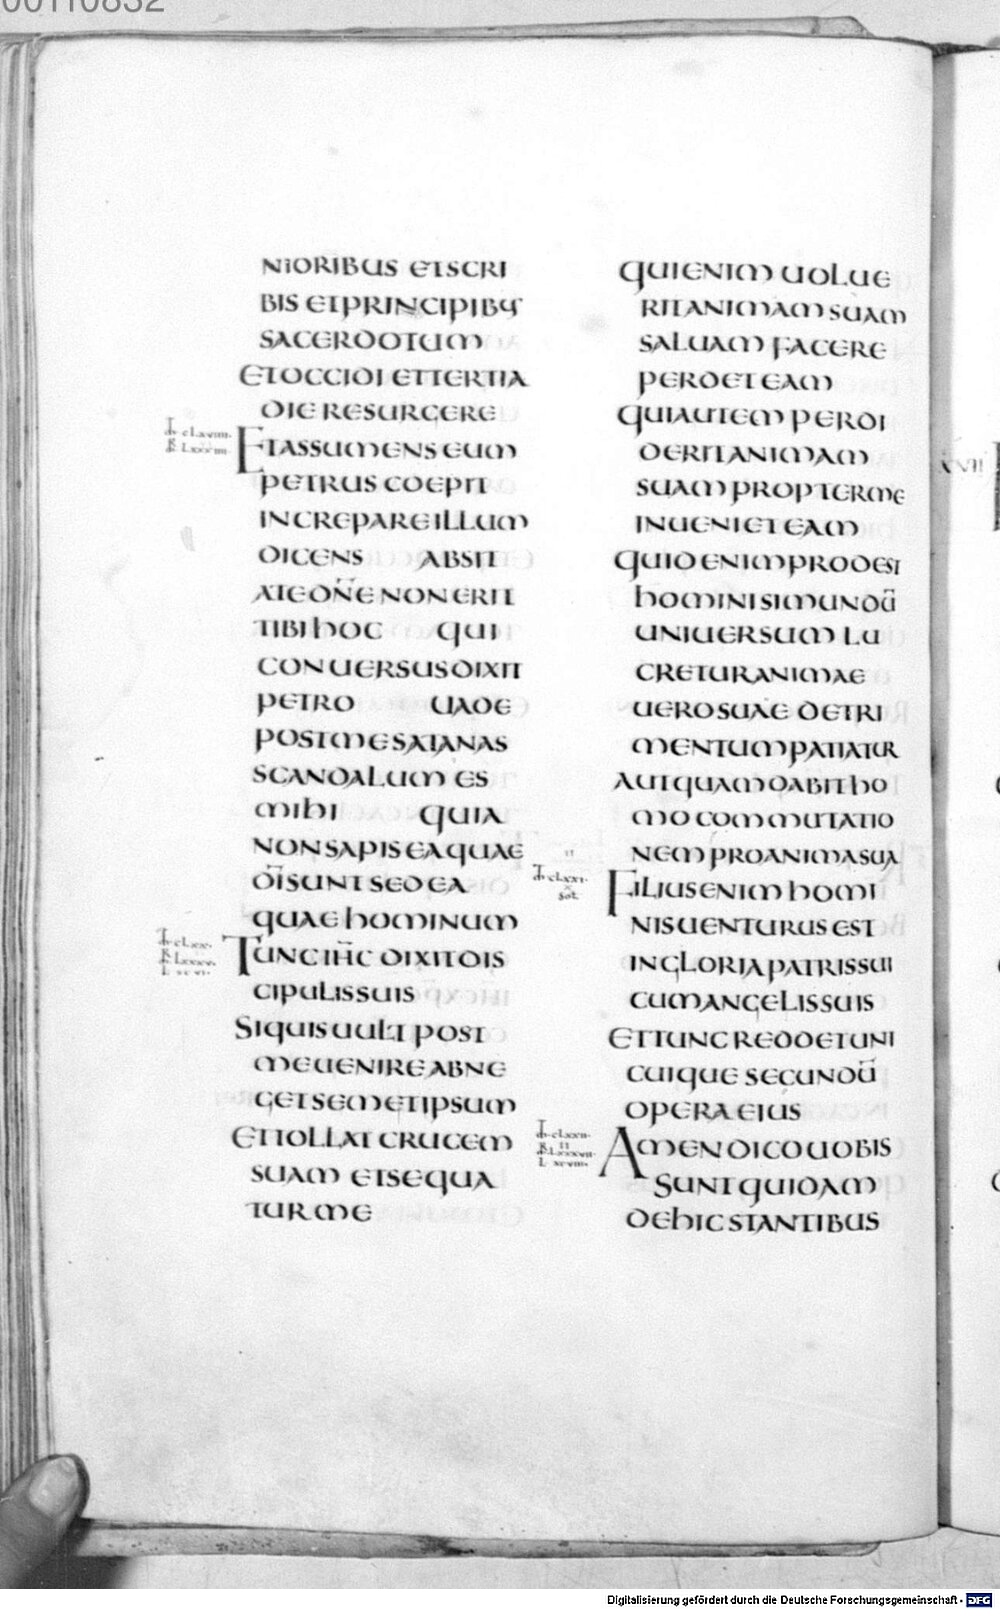 00110832
NIORIBUS ETSCRI
BIS ETPRINCIPIBUS
SACERDOTUM
ETOCCIDI ETTERTIA
DIE RESURGERE
ETASSUMENS EUM
PETRUS COEPIT
INCREPARE ILLUM
DICENS ABSIT
ATE DÑE NON ERIT
TIBI HOC QUI
CONUERSUS DIXIT
PETRO UADE
POSTME SATANAS
SCANDALUM ES
MIHI QUIA
NON SAPIS EA QUAE
DĪ SUNT SED EA
QUAE HOMINUM
TUNC IHC DIXIT DIS
CIPULIS SUIS
SIQUIS UULT POST
ME UENIRE ABNE
GET SEMETIPSUM
ETTOLLAT CRUCEM
SUAM ETSEQUA
TUR ME
QUIENIM UOLUE
RIT ANIMAM SUAM
SALUAM FACERE
PERDET EAM
QUIAUTEM PERDI
DERIT ANIMAM
SUAM PROPTER ME
INUENIET EAM
QUID ENIM PRODEST
HOMINI SI MUNDŪ
UNIUERSUM LU
CRETUR ANIMAE
UERO SUAE DETRI
MENTUM PATIATUR
AUT QUAM DABIT HO
MO COMMUTATIO
NEM PRO ANIMA SUA
FILIUS ENIM HOMI
NIS UENTURUS EST
IN GLORIA PATRIS SUI
CUM ANGELIS SUIS
ET TUNC REDDET UNI
CUIQUE SECUNDŪ
OPERA EIUS
AMEN DICO UOBIS
SUNT QUIDAM
DE HIC STANTIBUS
XVII
Digitalisierung gefördert durch die Deutsche Forschungsgemeinschaft - DFG